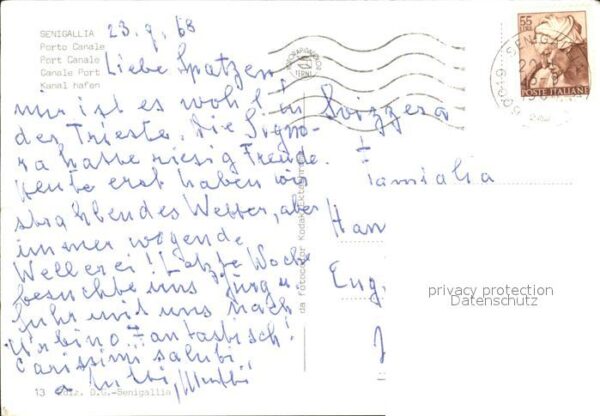 SENIGALLIA
Porto Canale
Port Canale
Canale Port
Kanal hafen
23.9.68
Liebe Spatzen
mir ist es wohl in
der Trieste. Die Signo-
ra hatte riesig Freude.
Heute erst haben wir
strahlendes Wetter, aber
immer wogende
Wellerei! Letzte Woche
besuchte uns Jürg u.
fuhr mit uns nach
Urbino. Fantastisch!
Carissimi saluti
a tutti,
13 D.G.-Senigallia
da fotocolor Kodak Ektachrome
55
POSTE ITALIANE
SENIGALLIA
60019
Svizzera
Famiglia
Han
Eng
privacy protection
Datenschutz